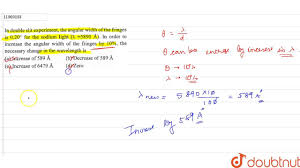 11969193
In double slit experiment, the angular width of the fringes
is 0.20° for the sodium light (λ =5890 Å). In order to
increase the angular width of the fringes by 10%, the
necessary change in the wavelength is
(a) Increase of 589 Å (b) Decrease of 589 Å
(c) Increase of 6479 Å (d) Zero
θ = λ/d
θ can be increase by increase in λ
θ → 10%
λ → 10%
λ new = 5890×10/100 = 589 Å
Increase by 589 Å
doubtnut